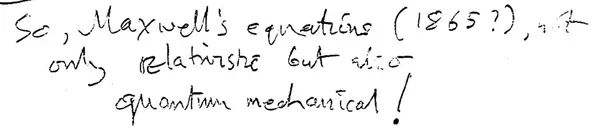 So, Maxwell's equations (1865?), not
only relativistic but also
quantum mechanical!